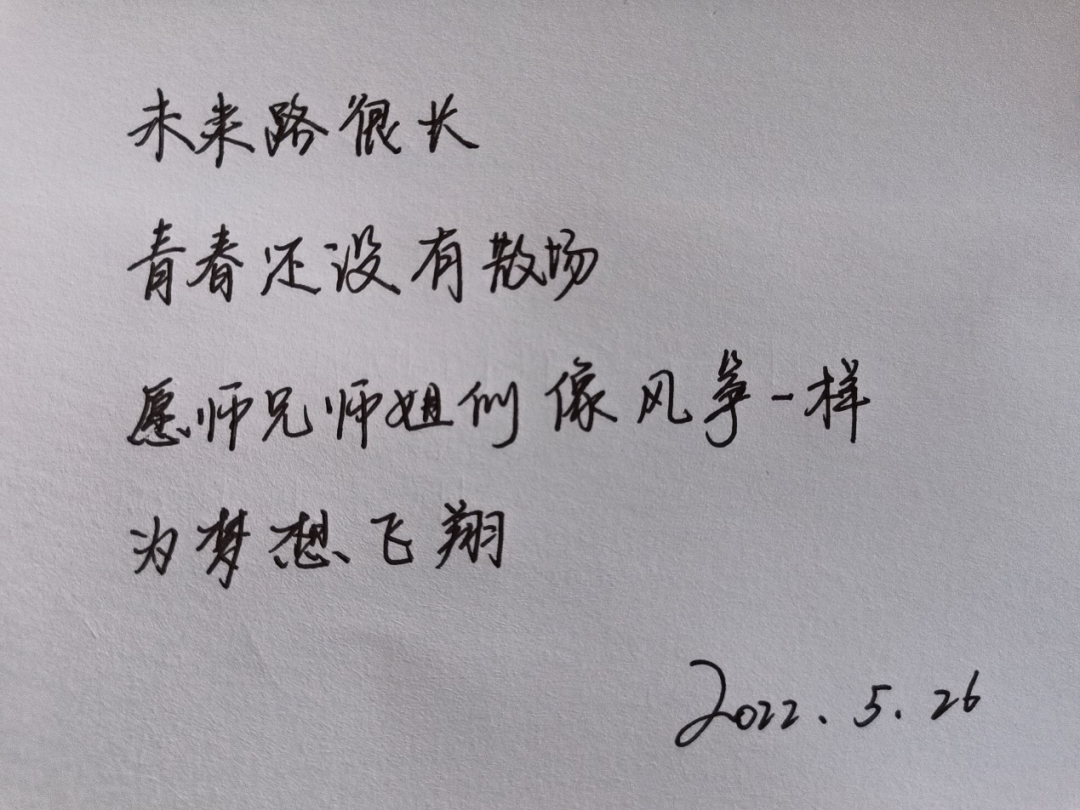 未来路很长
青春还没有散场
愿师兄师姐们像风筝一样
为梦想飞翔
2022.5.26